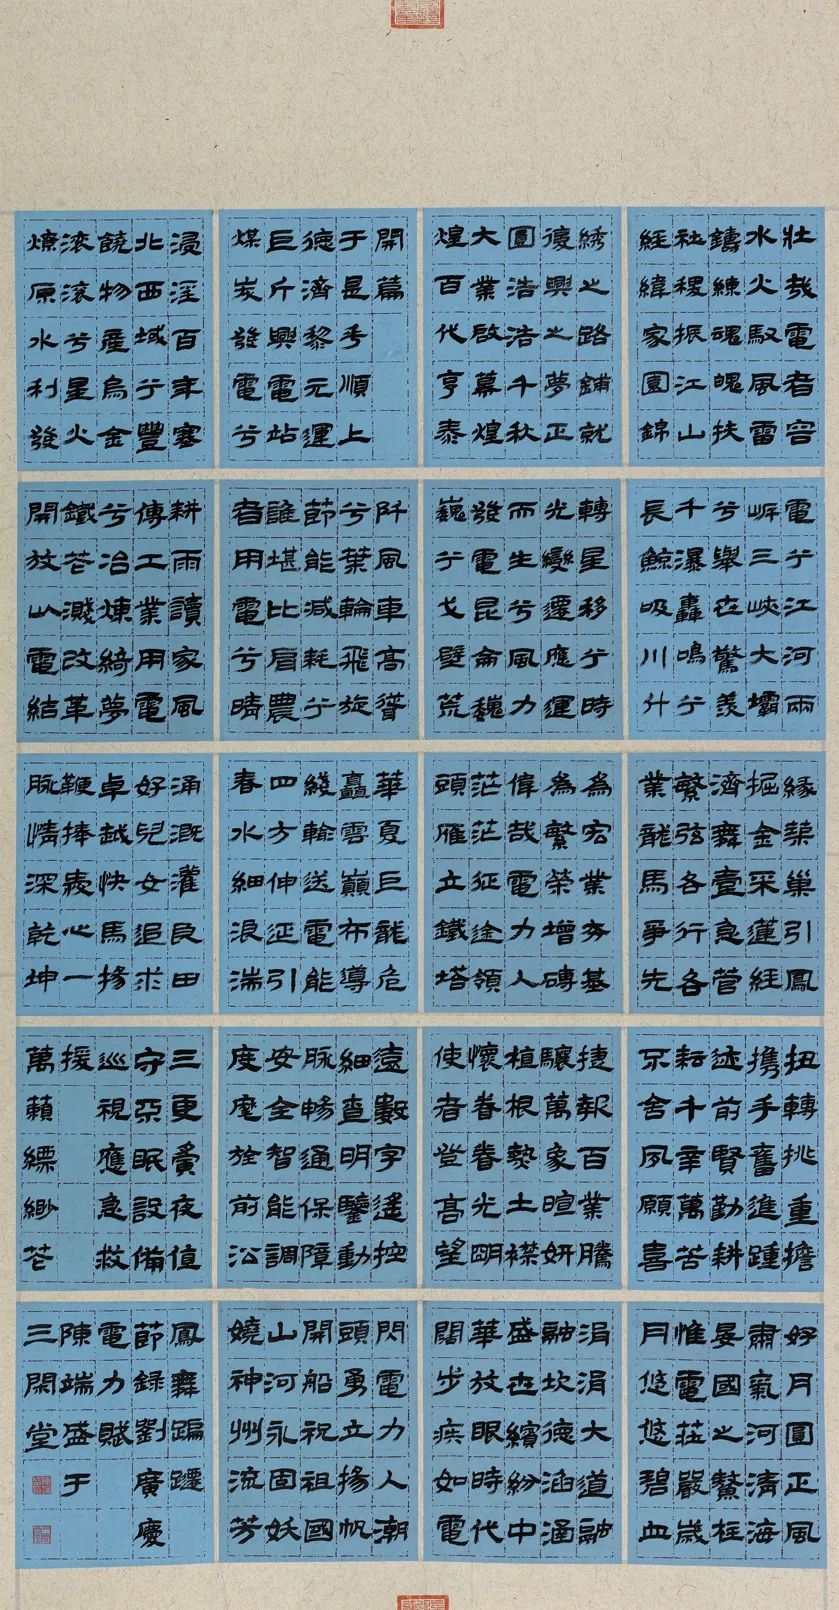 壯哉電者容
水火馭風雷
鑄練魂魄扶
社稷振江山
經緯家園錦
綉之路鋪就
復興之夢正
圓浩浩千秋
大業啟幕煌
煌百代亨泰
開篇
于是乎順上
德濟黎元運
巨斤興電站
煤炭發電兮
浸淫百年塞
北西域兮豐
饒物產烏金
滾滾兮星火
燎原水利發
電兮江河兩
岸三峽大壩
兮舉世驚羨
千瀑轟鳴兮
長鯨吸川什
轉星移兮時
光變遷應運
而生兮風力
發電昆侖巍
巍兮戈壁荒
阡風車高聳
兮葉輪飛旋
節能減耗兮
誰堪比肩農
者用電兮晴
耕雨讀家風
傳工業用電
兮冶煉綺夢
鐵花濺改革
開放以電結
緣築巢引鳳
掘金采蓮經
濟舞臺急管
繁弦各行各
業龍馬爭先
為宏業夯基
為繁榮增磚
偉哉電力人
茫茫征途領
頭雁立鐵塔
華夏巨龍危
矗雲巔布導
綫輸送電能
四方伸延引
春水細浪湍
涌溉灌良田
好兒女追求
卓越快馬揚
鞭捧心一
脈情深乾坤
扭轉挑重擔
攜手奮進踵
迹前賢勤耕
耘千辛萬苦
不舍夙願喜
捷報百業騰
驤萬象暄妍
植根熱土襟
懷眷眷光明
使者登高望
遠數字遙控
細查明鑒動
脈暢通保障
安全智能調
度麾旌前沿
三更夤夜值
守不眠設備
巡視應急救
援
萬籟縹緲花
好月圓正風
肅氣河清海
晏國之鰲柱
惟電莊嚴歲
月悠悠碧血
涓涓大道融
融坎德涵涵
盛世繽紛中
華放眼時代
闊步疾如電
閃電力人潮
頭勇立揚帆
開船祝祖國
山河永固妖
嬈神州流芳
鳳舞蹁躚
節錄劉廣慶
電力賦
陳端盛于
三閑堂